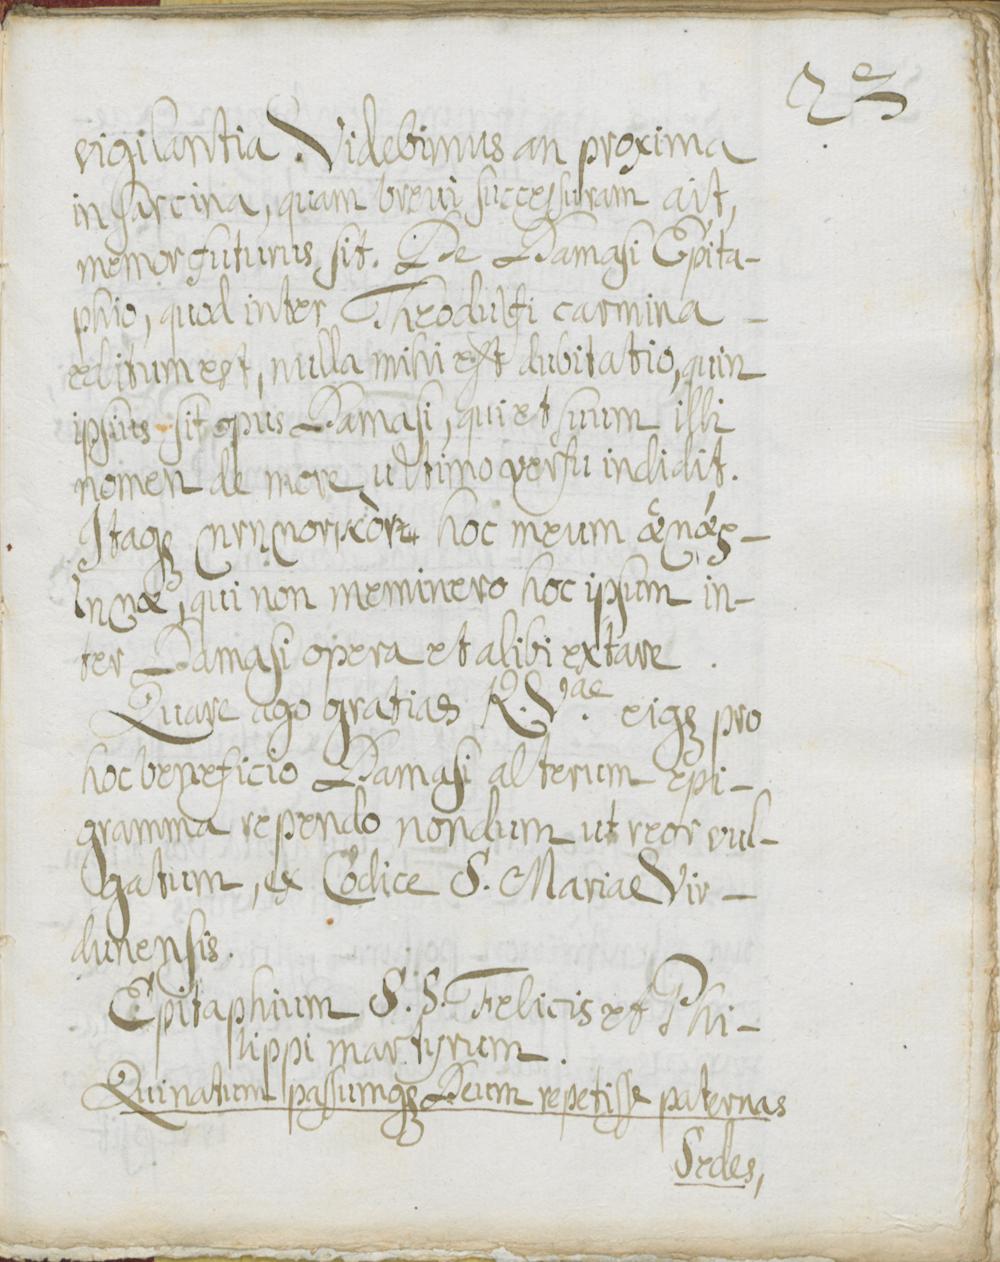 23
vigilantia. Videbimus an proxima
in sarcina, quam brevi successuram ait,
memor futurus sit. De Damasi Epita-
phio, quod inter Theodulfi carmina
editum est, nulla mihi est dubitatio, quin
ipsius sit opus Damasi, qui et suum illi
nomen de more ultimo versu indidit.
Itaqȝ hoc meum
qui non meminero hoc ipsum in-
ter Damasi opera et alibi extare.
Quare ago gratias R. V.ae eiqȝ pro
hoc beneficio Damasi alterum epi-
gramma rependo nondum ut reor vul-
gatum, ex Codice S. Mariae Vir-
dunensis.
Epitaphium S. S. Felicis et Phi-
lippi martyrum.
Qui natum passumqȝ Deum repetisse paternas
Sedes,